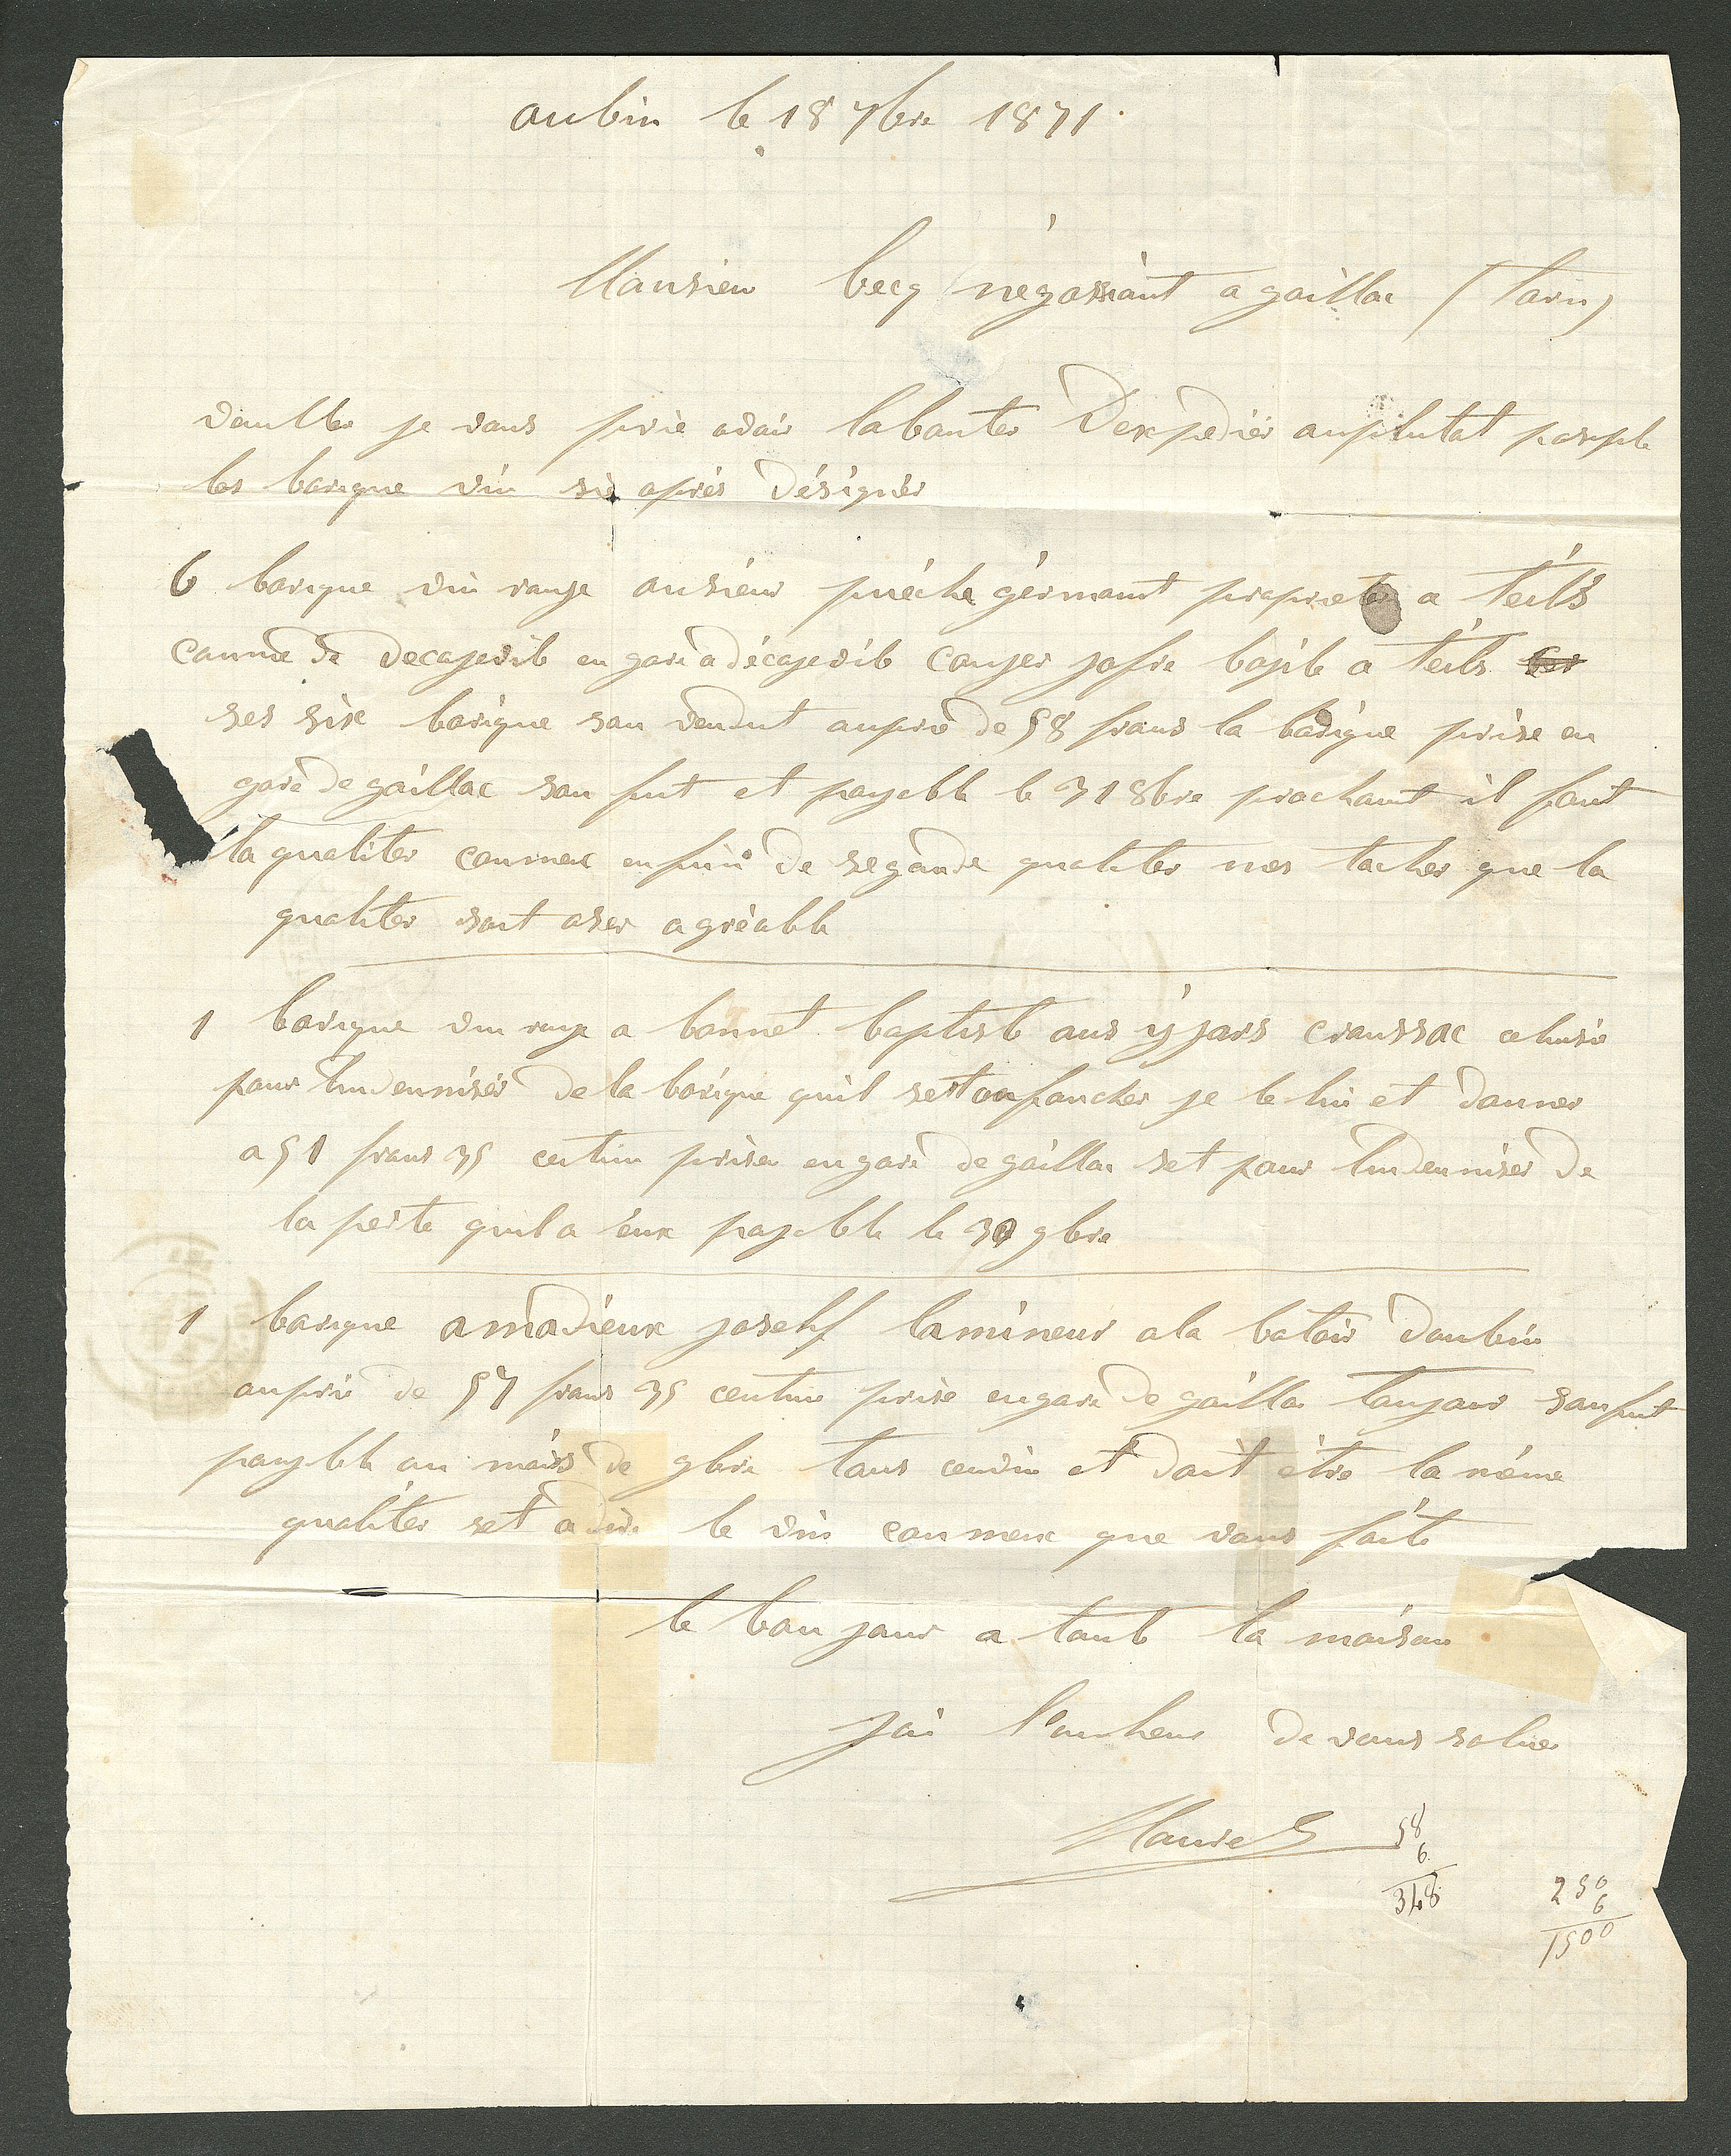 aubin le 18 7bre 1871.
Mansieu becq négossiant a gaillac (Tarn)
veullez je vous prie avoir labontes D'expedier auplutot posiple
les barique vin si après Désignés
6 barique vin rouge ausieur puéche gérmant propriete a Teils
canne de decazevile en gare a décazevile couyer jofre bajile a teils
ses sise barique son vendut auprè de 58 frans la barique prise en
gare de gaillac son fut et payable le 31 8bre prochant il faut
la qualiter conmerc enfuit de segonde qualiter mes tacher que la
qualiter soit aser agréable
1 barique vin rouge a bonnet baptiste aus ijjars craussac
pour lindemniser de la barique quil set onfoncher je le lui et donner
a 51 frans 35 centim prise en gare de gaillac set pour lindemniser de
la perte quil a eux payable le 30 9bre
1 barique amadieux josehf lamineur ala batoir Daubin
auprix de 57 frans 35 centim prise en gare de gaillac toujour sonfut
payable au mois de 9bre tous cevin et doit étre la méme
qualiter set a dire le vin conmerc que vous faite
le bonjour a toute la maison
jai l'onheur de vous saluer
58
6
348
250
6
1500